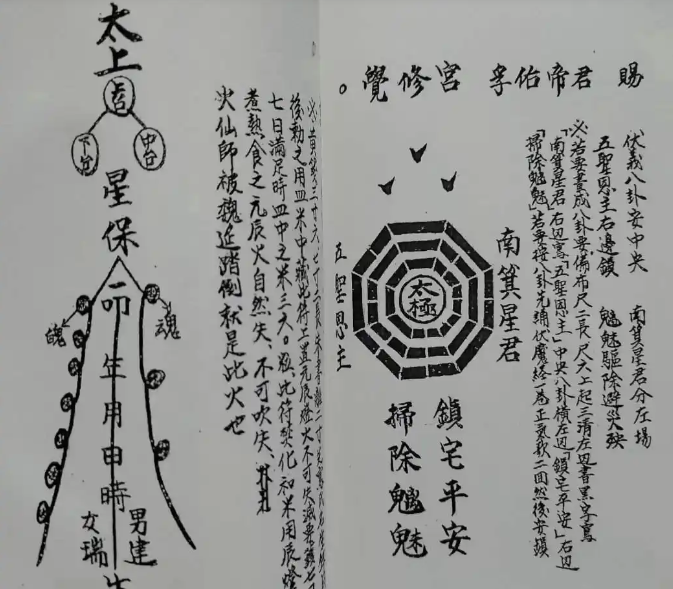 賜　君帝佑孚　宮修覺。
伏羲八卦安中央　南箕星君分左場
五聖恩主右邊鎮　魑魅驅除避災殃
若要書成八卦要備布尺二長尺六上起三清左邊書黑字寫
「南箕星君」右辺寫「五聖恩主」中央八卦橫左辺「鎮宅平安」右辺
「掃除魑魅」若要接八卦先誦伏魔経一卷正氣歌二回然後安鎮
南箕星君
太極
五聖恩主
鎮宅平安
掃除魑魅
後動之用皿米中藏此符上置元辰燈火不可失滅
七日滿足時皿中之米三大。粒比符焚化和米用辰燈
煮熟食之元辰火自然失、不可吹失、
火仙師被魏延踏倒就是此火也
太上
上台
中台
下台
星保
命
魂
魄
年用申時
男建
女瑞
生